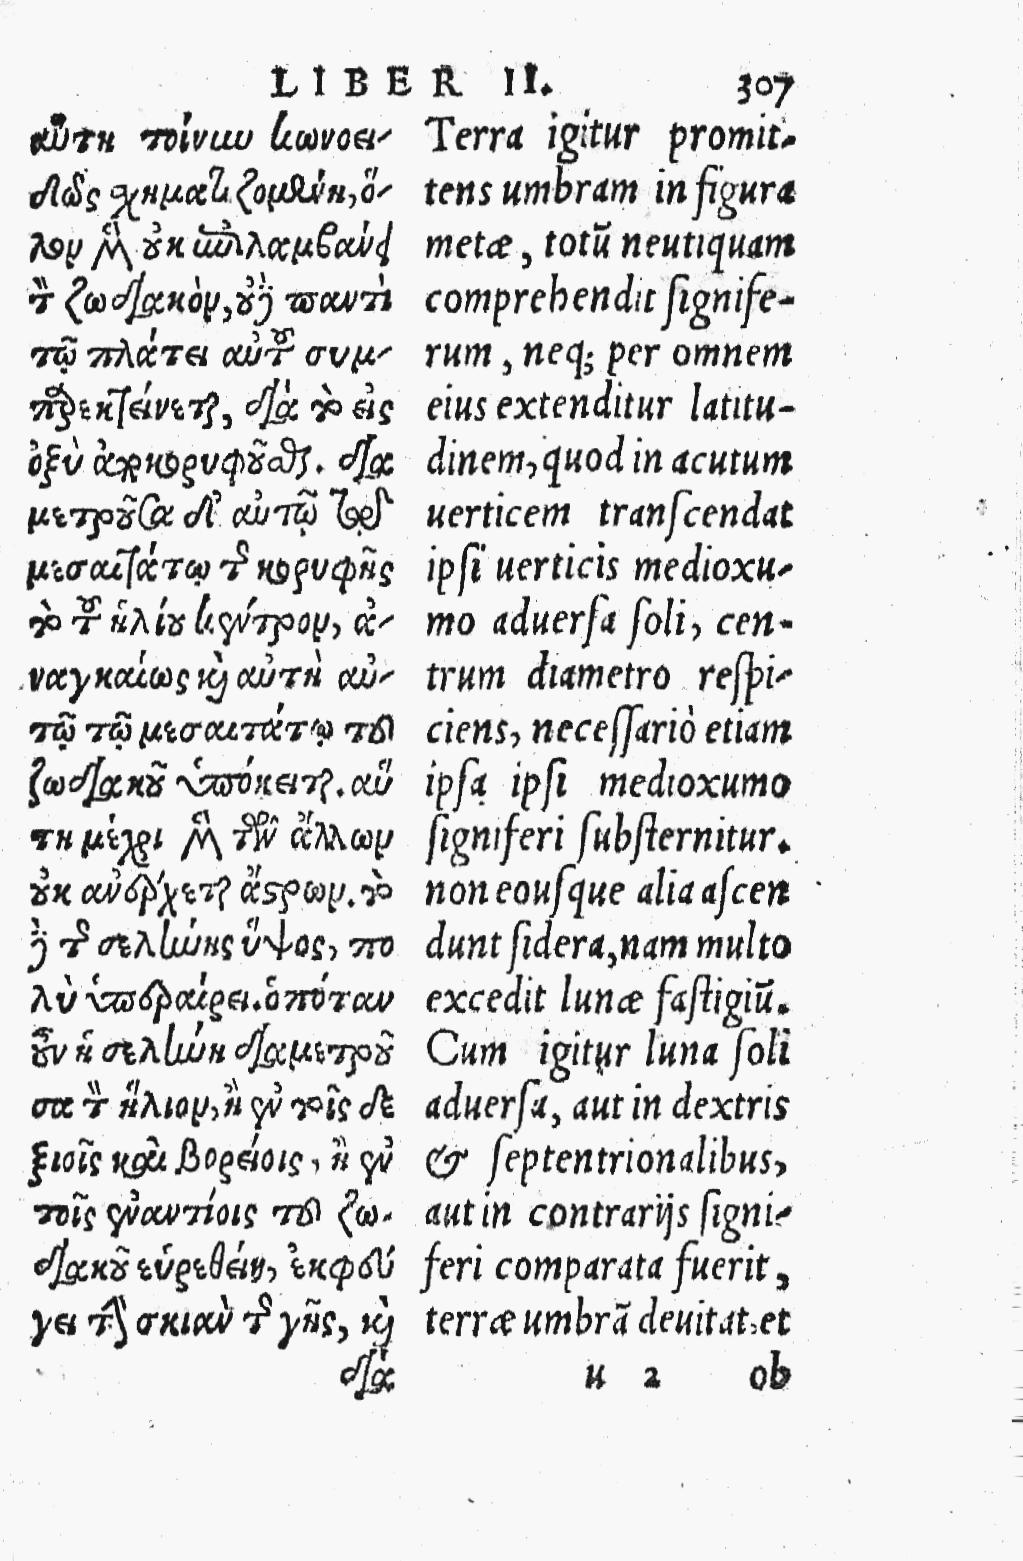 LIBER II. 307
αὕτη τοίνυν κωνοει-
δῶς σχηματιζομένη, ὅ-
λον μὲν οὐκ ἀπολαμβάνει
τὸν ζωδιακὸν, οὐδὲ παντὶ
τῷ πλάτει αὐτοῦ συμ-
παρεκτείνεται, διὰ τὸ εἰς
ὀξὺ ἀποκορυφοῦσθαι. δια
μετροῦσα δ' αὐτῷ
μεσαιτάτῳ τῆς κορυφῆς
τὸ τοῦ ἡλίου κέντρον, ἀ-
ναγκαίως καὶ αὐτὴ αὐ-
τῷ τῷ μεσαιτάτῳ τοῦ
ζωδιακοῦ ὑπόκειται. αὕ
τη μέχρι μὲν τῶν ἄλλων
οὐκ ἀνέρχεται ἄστρων. τὸ
δὲ τῆς σελήνης ὕψος, πο
λὺ ὑπεραίρει. ὁπόταν
οὖν ἡ σελήνη διαμετροῦ
σα τὸν ἥλιον, ἢ ἐν τοῖς δε
ξιοῖς καὶ βορείοις, ἢ ἐν
τοῖς ἐναντίοις τοῦ ζω-
διακοῦ εὑρεθείη, ἐκφεύ
γει τὴν σκιὰν τῆς γῆς, καὶ
διὰ
Terra igitur promit-
tens umbram in figura
metæ, totũ neutiquam
comprehendit signife-
rum, neq; per omnem
eius extenditur latitu-
dinem, quod in acutum
uerticem transcendat
ipsi uerticis medioxu-
mo aduersa soli, cen-
trum diametro respi-
ciens, necessariò etiam
ipsa ipsi medioxumo
signiferi substernitur.
non eousque alia ascen
dunt sidera, nam multo
excedit lunæ fastigiũ.
Cum igitur luna soli
aduersa, aut in dextris
& septentrionalibus,
aut in contrarijs signi-
feri comparata fuerit,
terræ umbrã deuitat, et
u 2 ob